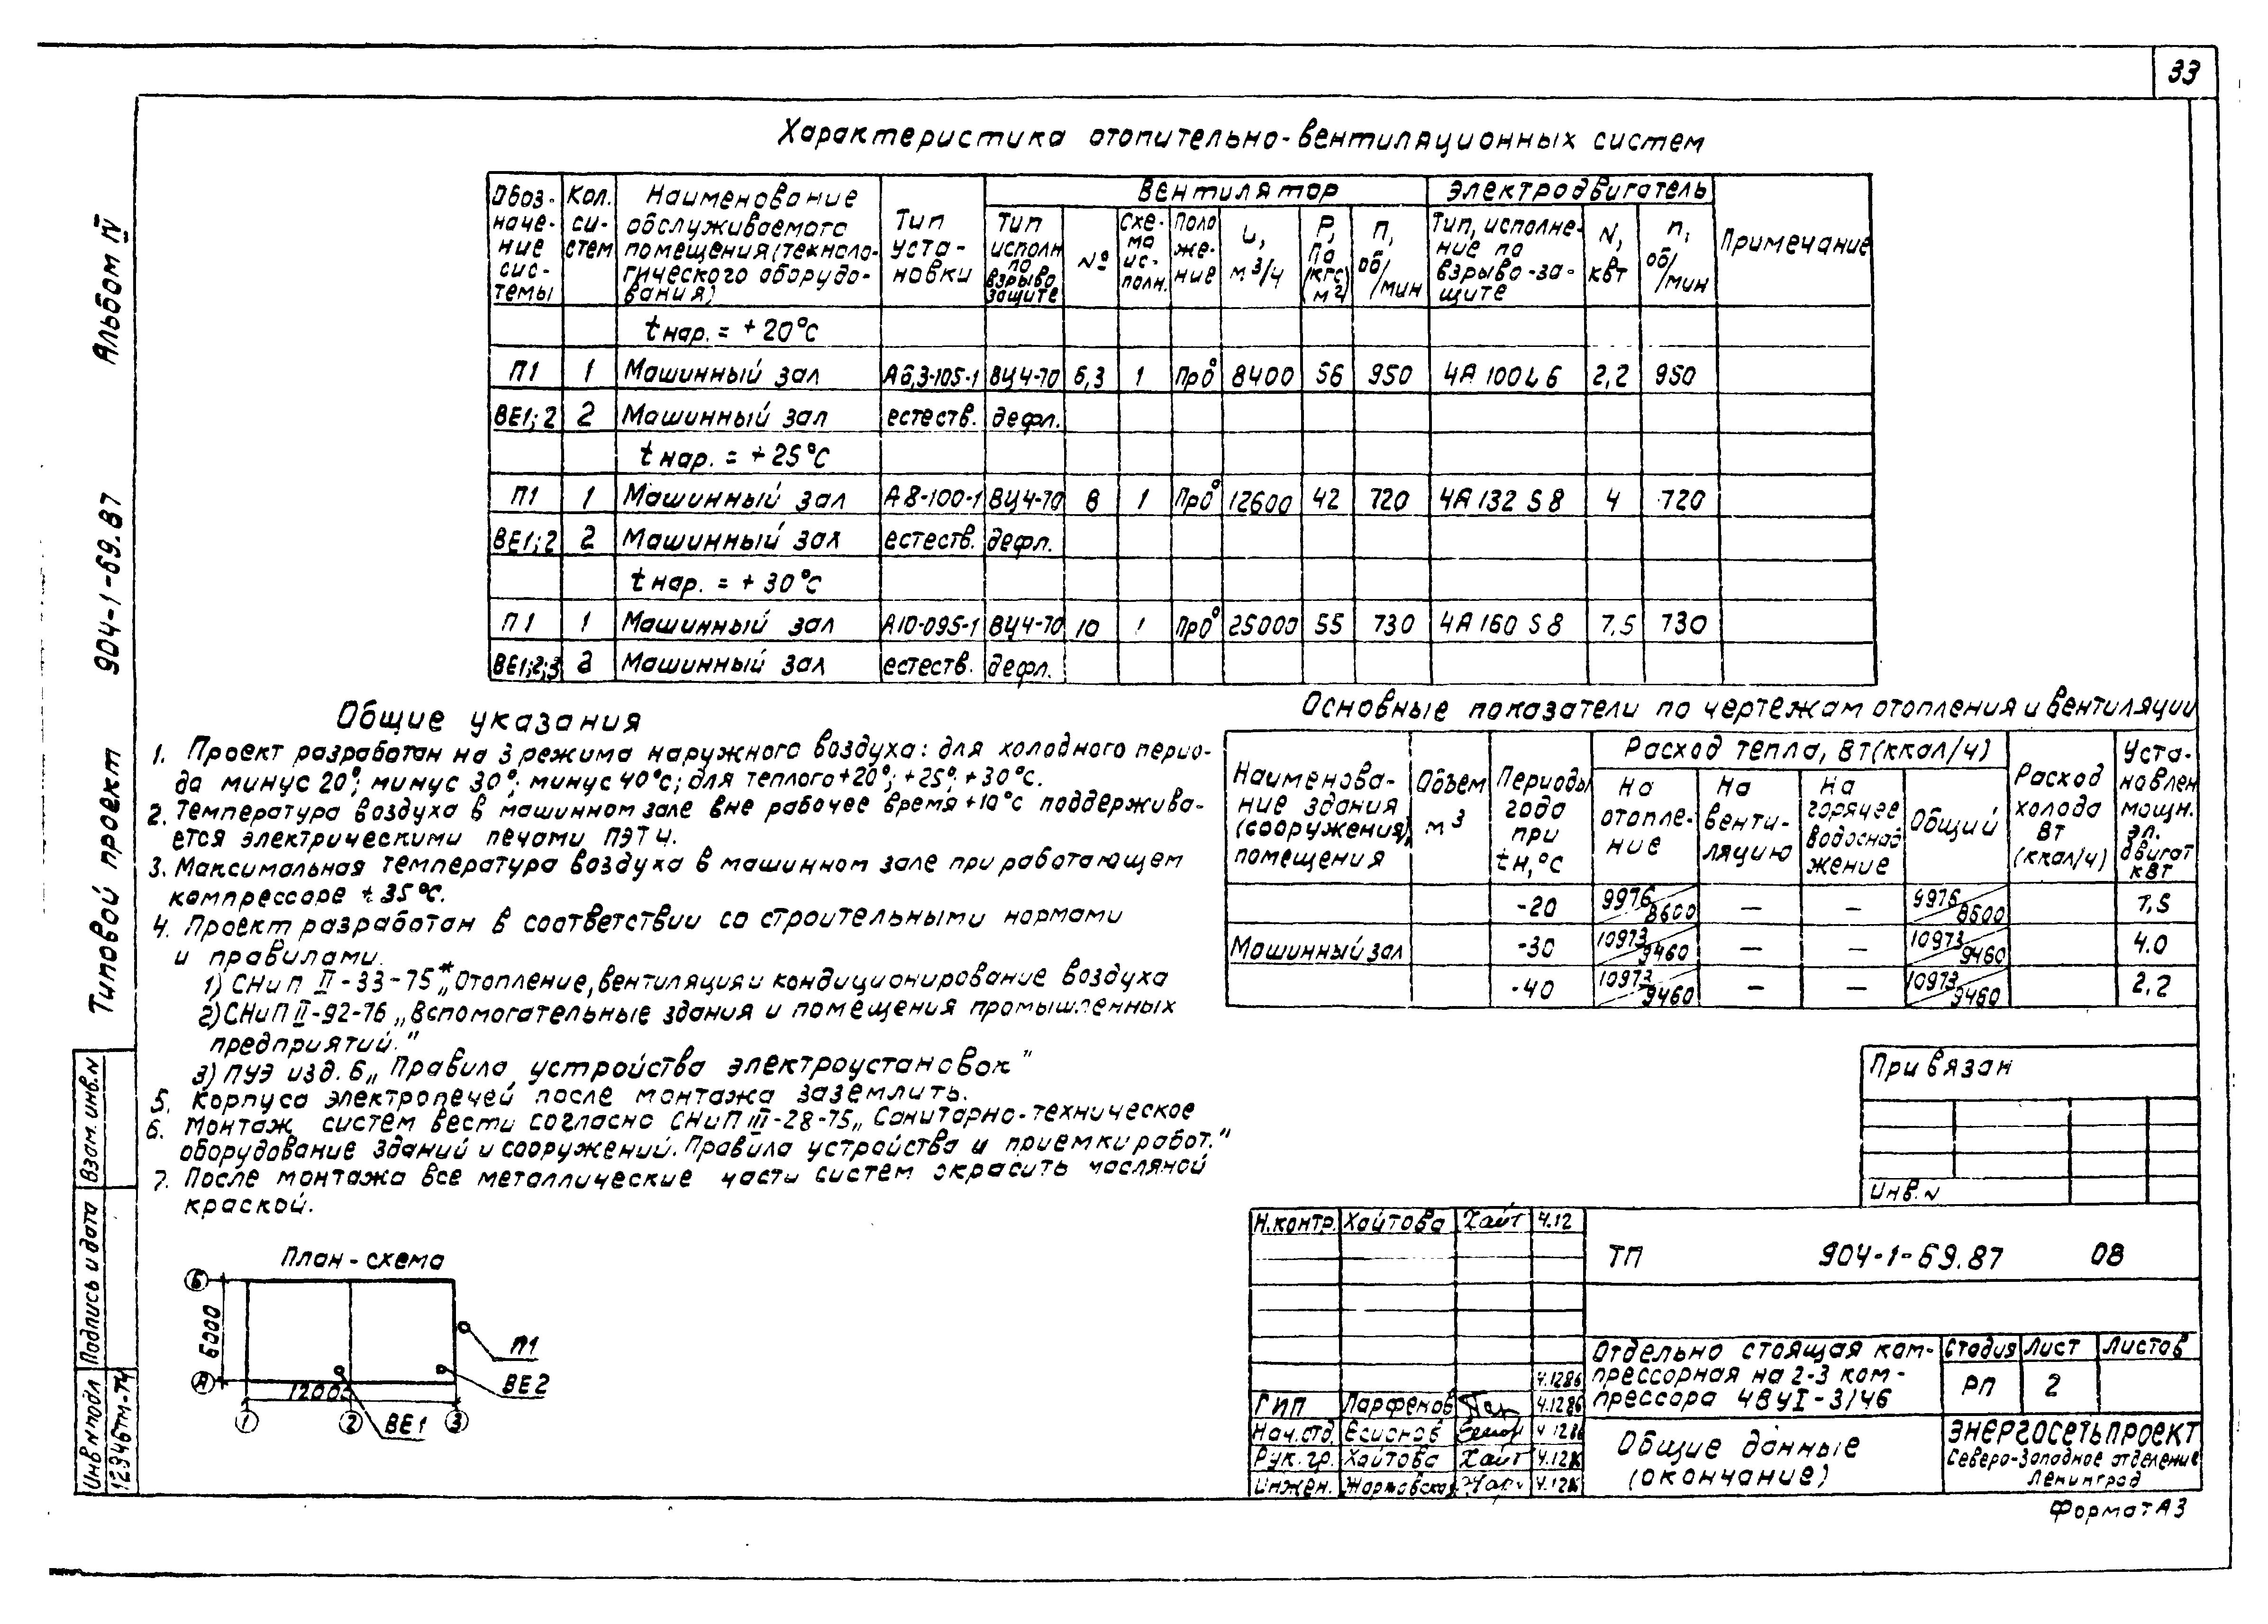 33
Альбом IV
904-1-69.87
Типовой проект
Взам. инв. N
Подпись и дата
Инв N подл
12346тм-т4
Характеристика отопительно-вентиляционных систем
Обоз-
наче-
ние
сис-
темы
Кол.
си-
стем
Наименование
обслуживаемого
помещения (техноло-
гического оборудо-
вания)
Тип
уста-
новки
Вентилятор
Тип
исполн
по
взрыво
защите
№
Схе-
ма
ис-
полн.
Поло
же-
ние
L,
м³/ч
Р,
Па
(кгс/
м²)
П,
об/
/мин
Электродвигатель
Тип, исполне-
ние по
взрыво-за-
щите
N,
квт
п,
об/
/мин
Примечание
t нар. = +20°С
П1 1 Машинный зал А6,3-105-1 ВЦ4-70 6,3 1 Пр0° 8400 56 950 4А 100L6 2,2 950
ВЕ1;2 2 Машинный зал естеств. дефл.
t нар. = +25°С
П1 1 Машинный зал А8-100-1 ВЦ4-70 8 1 Пр0° 12600 42 720 4А 132 S8 4 720
ВЕ1;2 2 Машинный зал естеств. дефл.
t нар. = +30°С
П1 1 Машинный зал А10-095-1 ВЦ4-70 10 1 Пр0° 25000 55 730 4А 160 S8 7,5 730
ВЕ1;2;3 3 Машинный зал естеств. дефл.
Общие указания
1. Проект разработан на 3 режима наружного воздуха: для холодного перио-
да минус 20°; минус 30°; минус 40°с; для теплого +20°; +25°; +30°с.
2. Температура воздуха в машинном зале вне рабочее время +10°с поддержива-
ется электрическими печами ПЭТ4.
3. Максимальная температура воздуха в машинном зале при работающем
компрессоре +35°с.
4. Проект разработан в соответствии со строительными нормами
и правилами.
1) СНиП II-33-75* „Отопление, вентиляция и кондиционирование воздуха
2) СНиП II-92-76 „Вспомогательные здания и помещения промышленных
предприятий."
3) ПУЭ изд. 6 „Правила устройства электроустановок"
5. Корпуса электропечей после монтажа заземлить.
6. Монтаж систем вести согласно СНиП III-28-75 „Санитарно-техническое
оборудование зданий и сооружений. Правила устройства и приемки работ."
7. После монтажа все металлические части систем окрасить масляной
краской.
Основные показатели по чертежам отопления и вентиляции
Наименова-
ние здания
(сооружения),
помещения
Объем
м³
Периоды
года
при
tн,°с
Расход тепла, Вт (ккал/ч)
На
отопле-
ние
На
венти-
ляцию
На
горячее
водоснаб
жение
Общий
Расход
холода
Вт
(ккал/ч)
Уста-
новлен
мощн.
эл.
двигат
квт
-20 9976/8600 — — 9976/8600 7,5
Машинный зал -30 10973/9460 — — 10973/9460 4.0
-40 10973/9460 — — 10973/9460 2,2
План-схема
Б
6000
А
12000
1
2
3
П1
ВЕ2
ВЕ1
Привязан
Инв. N
Н.контр. Хаитова Хаит 4.12
ТП 904-1-69.87 08
Отдельно стоящая ком-
прессорная на 2-3 ком-
прессора 4ВУ1-3/46
Стадия Лист Листов
РП 2
4.1286
ГИП Парфенов 4.1286
Нач.отд. Есионов 4.1286
Рук.гр. Хаитова Хаит 4.1286
Инжен. 4.1286
Общие данные
(окончание)
ЭНЕРГОСЕТЬПРОЕКТ
Северо-Западное отделение
Ленинград
Формат А3